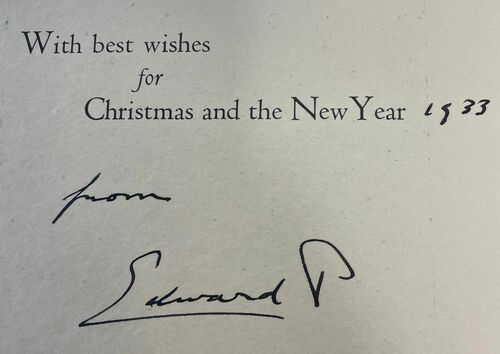 With best wishes
for
Christmas and the New Year 1933
from
Edward P